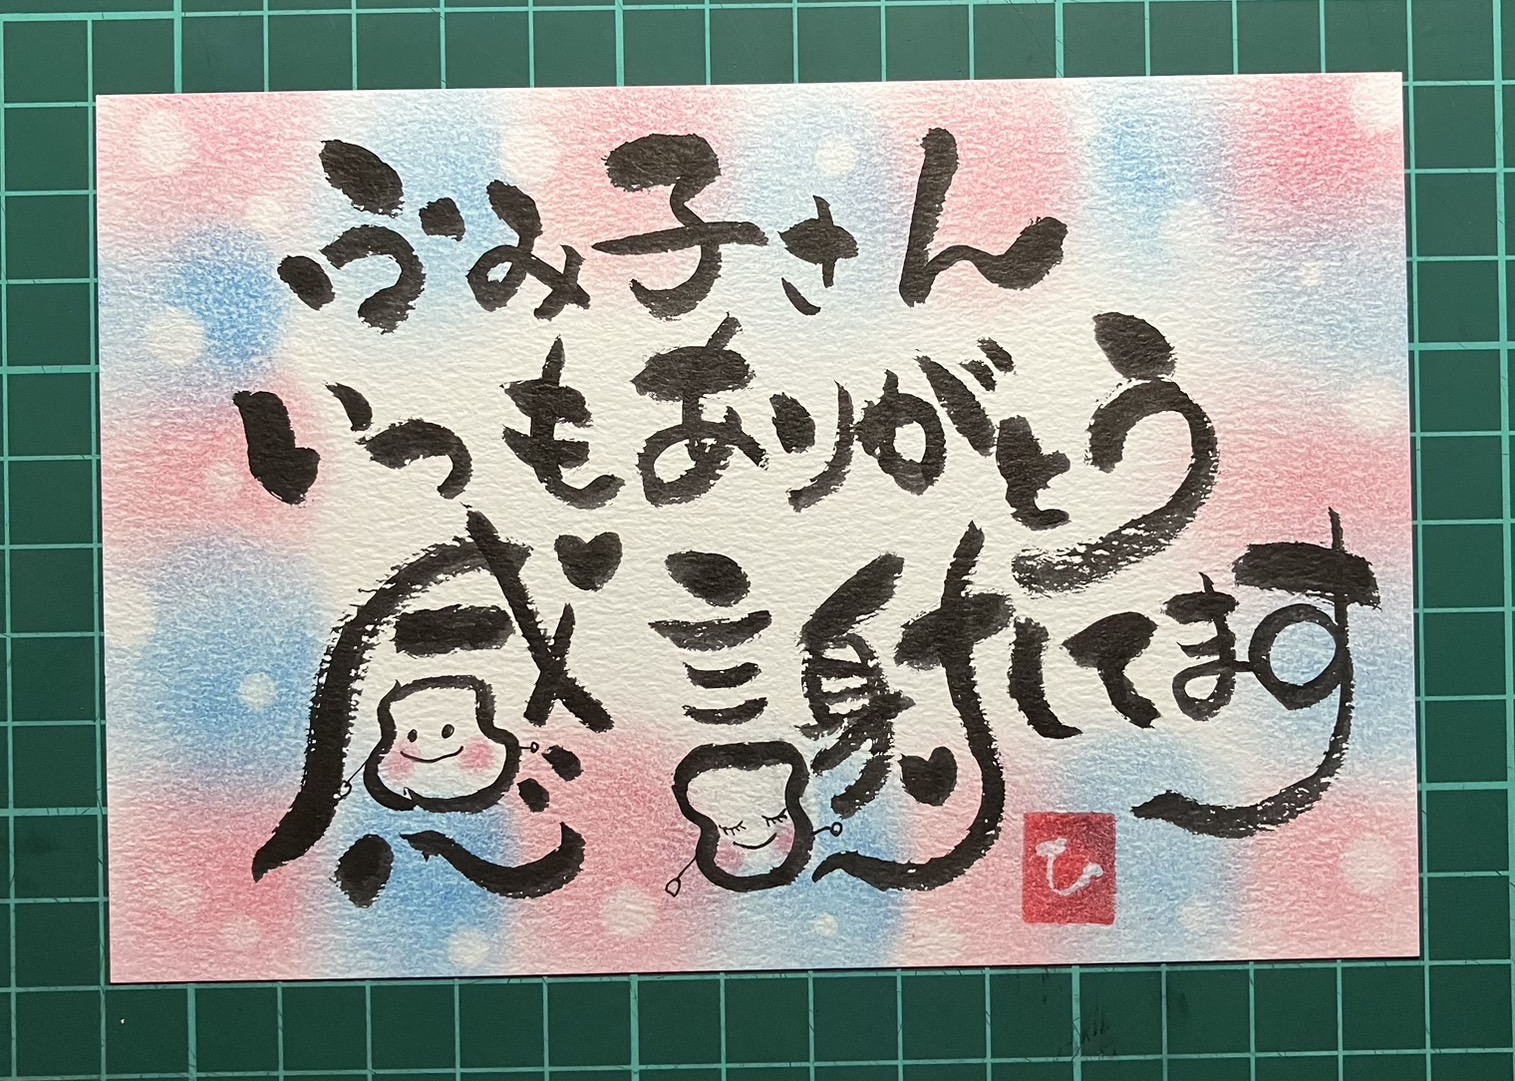 ふみ子さん
いつもありがとう
感謝してます
ひ